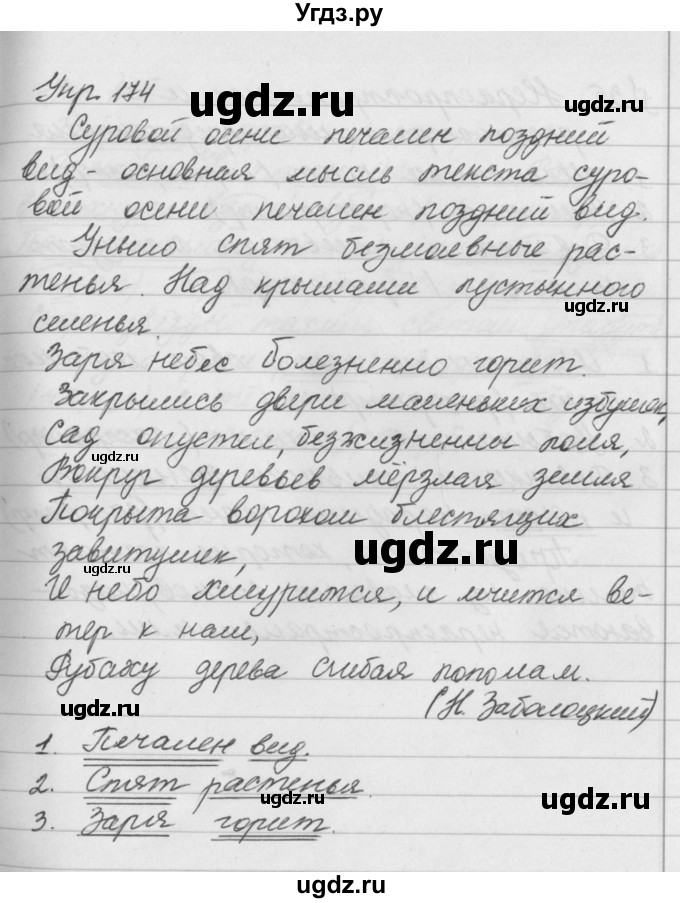 Угдз.ру
Упр. 174
ugdz.ru
ugdz.ru
Суровой осени печален поздний
вид - основная мысль текста суро-
вой осени печален поздний вид.
Уныло спят безмолвные рас-
ugdz.ru
тенья. Над крышами пустынного
ugdz.ru
селенья
Заря небес болезненно горит.
Закрылись двери маленьких избушек,
Сад опустел, безжизненны поля,
ugdz.ru
Вокруг деревьев мёрзлая земля
Покрыта ворохом блестящих
ugdz.ru
завитушек,
И небо хмурится, и мчится ве-
тер к нам,
Рубаху дерева сгибая пополам.
ugdz.ru
(Н. Заболоцкий)
1. Печален вид.
2. Спят растенья.
ugdz.ru
ugdz.ru
3. Заря горит.
ugdz.ru